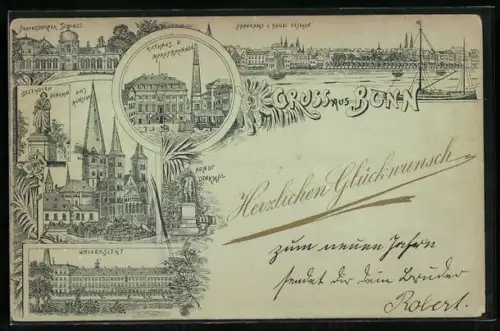 POPPELSDORFER SCHLOSS
PANORAMA V. HOTEL KAISERHOF
RATHAUS U.
MARKTBRUNNEN
BEETHOVEN
DENKMAL UND
MÜNSTER
GRUSS AUS BONN
ARNDT
DENKMAL
Herzlichen Glückwunsch
zum neuen Jahre
sendet dir dein Bruder
Robert.
UNIVERSITÄT